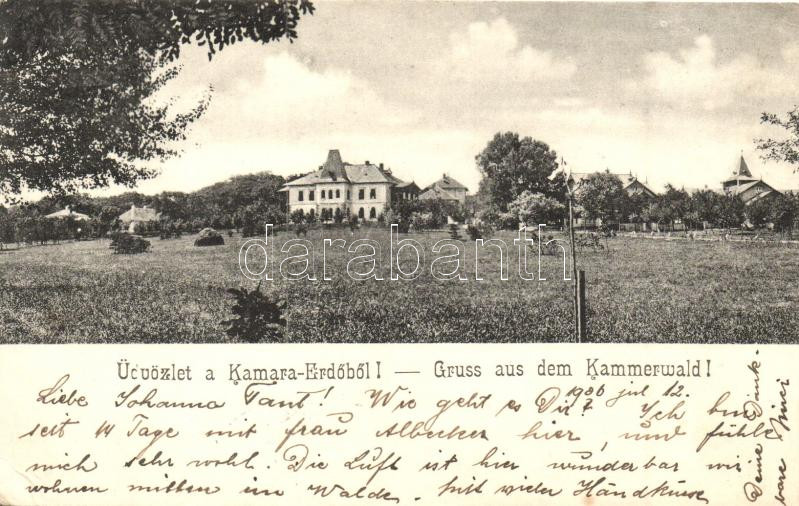 darabanth.com
Üdvözlet a Kamara-Erdőből! — Gruss aus dem Kammerwald!
1906 jul 12.
Liebe Johanna Tant! Wie geht es Dir? Ich bin
seit 14 Tage mit frau Albecker hier, und fühle
mich sehr wohl. Die Luft ist hier wunderbar wir
wohnen mitten im Walde. Mit vielen Händküsse
Deine Dank-
bare Mici